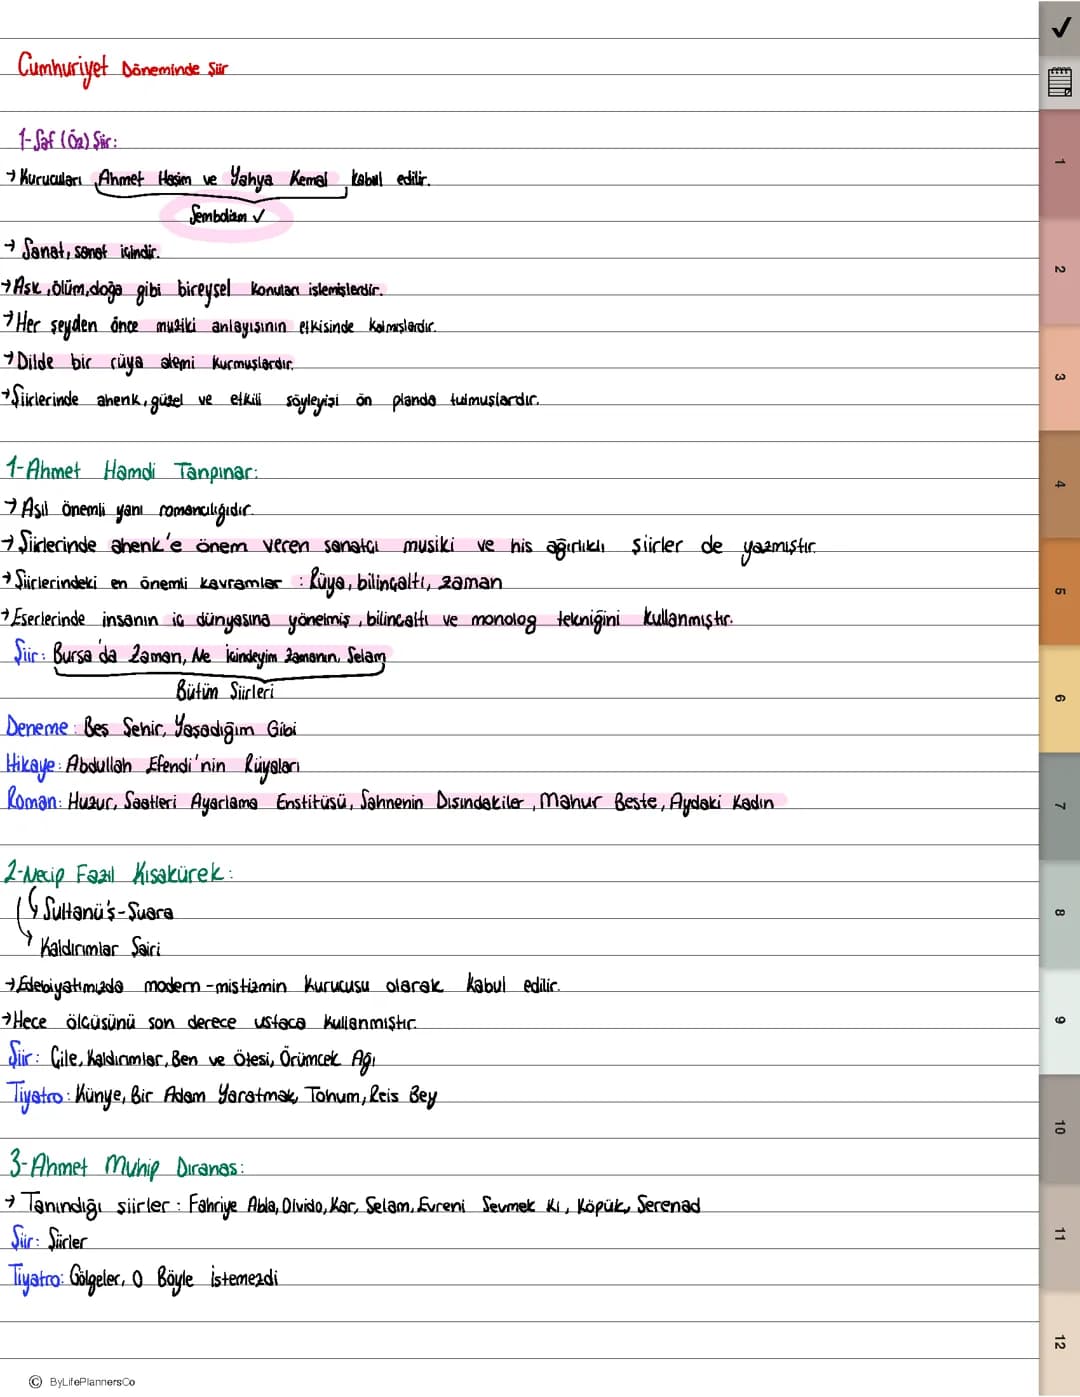 Cumhuriyet Döneminde Şiir
1-Saf (Öz) Şiir:
→ Kurucuları Ahmet Haşim ve Yahya Kemal kabul edilir.
Sembolizm ✓
→ Sanat, sanat içindir.
→ Aşk, ölüm, doğa gibi bireysel konuları işlemişlerdir.
→ Her şeyden önce musiki anlayışının etkisinde kalmışlardır.
→ Dilde bir rüya alemi kurmuşlardır.
→ Şiirlerinde ahenk, güzel ve etkili söyleyişi ön planda tutmuşlardır.
1-Ahmet Hamdi Tanpınar:
→ Asıl önemli yanı romancılığıdır.
→ Şiirlerinde ahenk'e önem veren sanatçı musiki ve his ağırlıklı şiirler de yazmıştır.
→ Şiirlerindeki en önemli kavramlar : Rüya, bilinçaltı, zaman
→ Eserlerinde insanın iç dünyasına yönelmiş, bilinçaltı ve monolog tekniğini kullanmıştır.
Şiir: Bursa'da Zaman, Ne İçindeyim Zamanın, Selam
Bütün Şiirleri
Deneme: Beş Şehir, Yaşadığım Gibi
Hikaye: Abdullah Efendi'nin Rüyaları
Roman: Huzur, Saatleri Ayarlama Enstitüsü, Sahnenin Dışındakiler, Mahur Beste, Aydaki Kadın
2-Necip Fazıl Kısakürek:
Sultanü's-Şuara
Kaldırımlar Şairi
→ Edebiyatımızda modern-mistizmin kurucusu olarak kabul edilir.
→ Hece ölçüsünü son derece ustaca kullanmıştır.
Şiir: Çile, Kaldırımlar, Ben ve Ötesi, Örümcek Ağı
Tiyatro: Künye, Bir Adam Yaratmak, Tohum, Reis Bey
3-Ahmet Muhip Dıranas:
→ Tanındığı şiirler : Fahriye Abla, Olvido, Kar, Selam, Evreni Sevmek Ki, Köpük, Serenad
Şiir: Şiirler
Tiyatro: Gölgeler, O Böyle İstemezdi
© ByLifePlannersCo
1
2
3
4
5
6
7
8
9
10
11
12